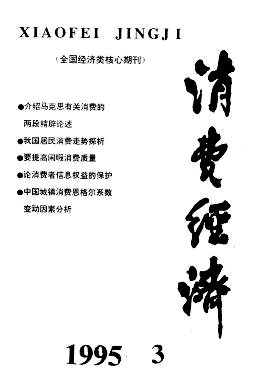 XIAOFEI JINGJI
(全国经济类核心期刊)
消费经济
●介绍马克思有关消费的
两段精辟论述
●我国居民消费走势探析
●要提高闲暇消费质量
●论消费者信息权益的保护
●中国城镇消费恩格尔系数
变动因素分析
1995 3